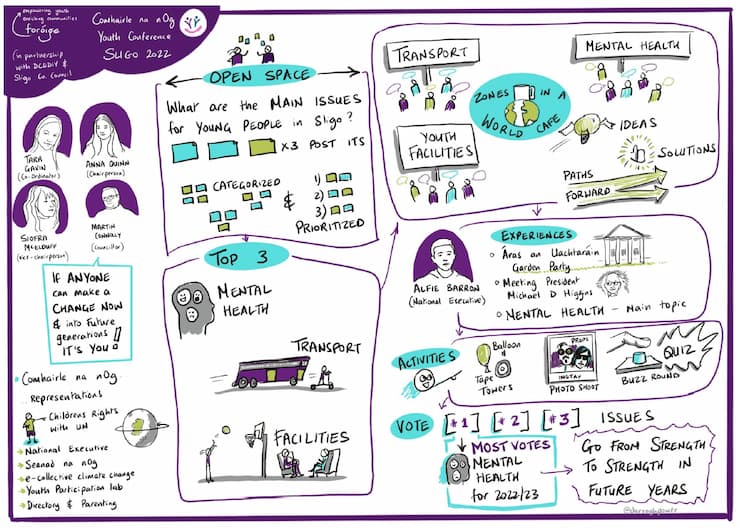 empowering youth
enriching communities
foróige
Comhairle na nÓg
Youth Conference
SLIGO 2022
in partnership
with DCEDIY &
Sligo Co. Council
TARA
GAVIN
(Co-Ordinator)
ANNA QUINN
(Chairperson)
SIOFRA
McELDUFF
(Vice-chairperson)
MARTIN
CONNOLLY
(Councillor)
IF ANYONE
can make a
CHANGE NOW
& into Future
generations
IT'S YOU!
Comhairle na nOg
representations
Childrens Rights
with UN
National Executive
Seanad na nOg
e-collective climate change
Youth Participation lab
Directory & Parenting
OPEN SPACE
What are the MAIN ISSUES
for YOUNG PEOPLE in Sligo?
x3 POST ITS
CATEGORIZED
&
1)
2)
3)
PRIORITIZED
TOP 3
MENTAL
HEALTH
TRANSPORT
FACILITIES
TRANSPORT
MENTAL HEALTH
YOUTH
FACILITIES
ZONES IN A
WORLD CAFE
IDEAS
SOLUTIONS
PATHS
FORWARD
ALFIE BARRON
(National Executive)
EXPERIENCES
Aras an Uachtaráin
Garden Party
Meeting President
Michael D Higgins
MENTAL HEALTH - Main topic
ACTIVITIES
Balloon
&
Tape
Towers
PROPS
INSTAX
PHOTO SHOOT
BUZZ ROUND
QUIZ
VOTE
[#1] [#2] [#3] ISSUES
MOST VOTES
MENTAL
HEALTH
for 2022/23
GO FROM STRENGTH
TO STRENGTH IN
FUTURE YEARS